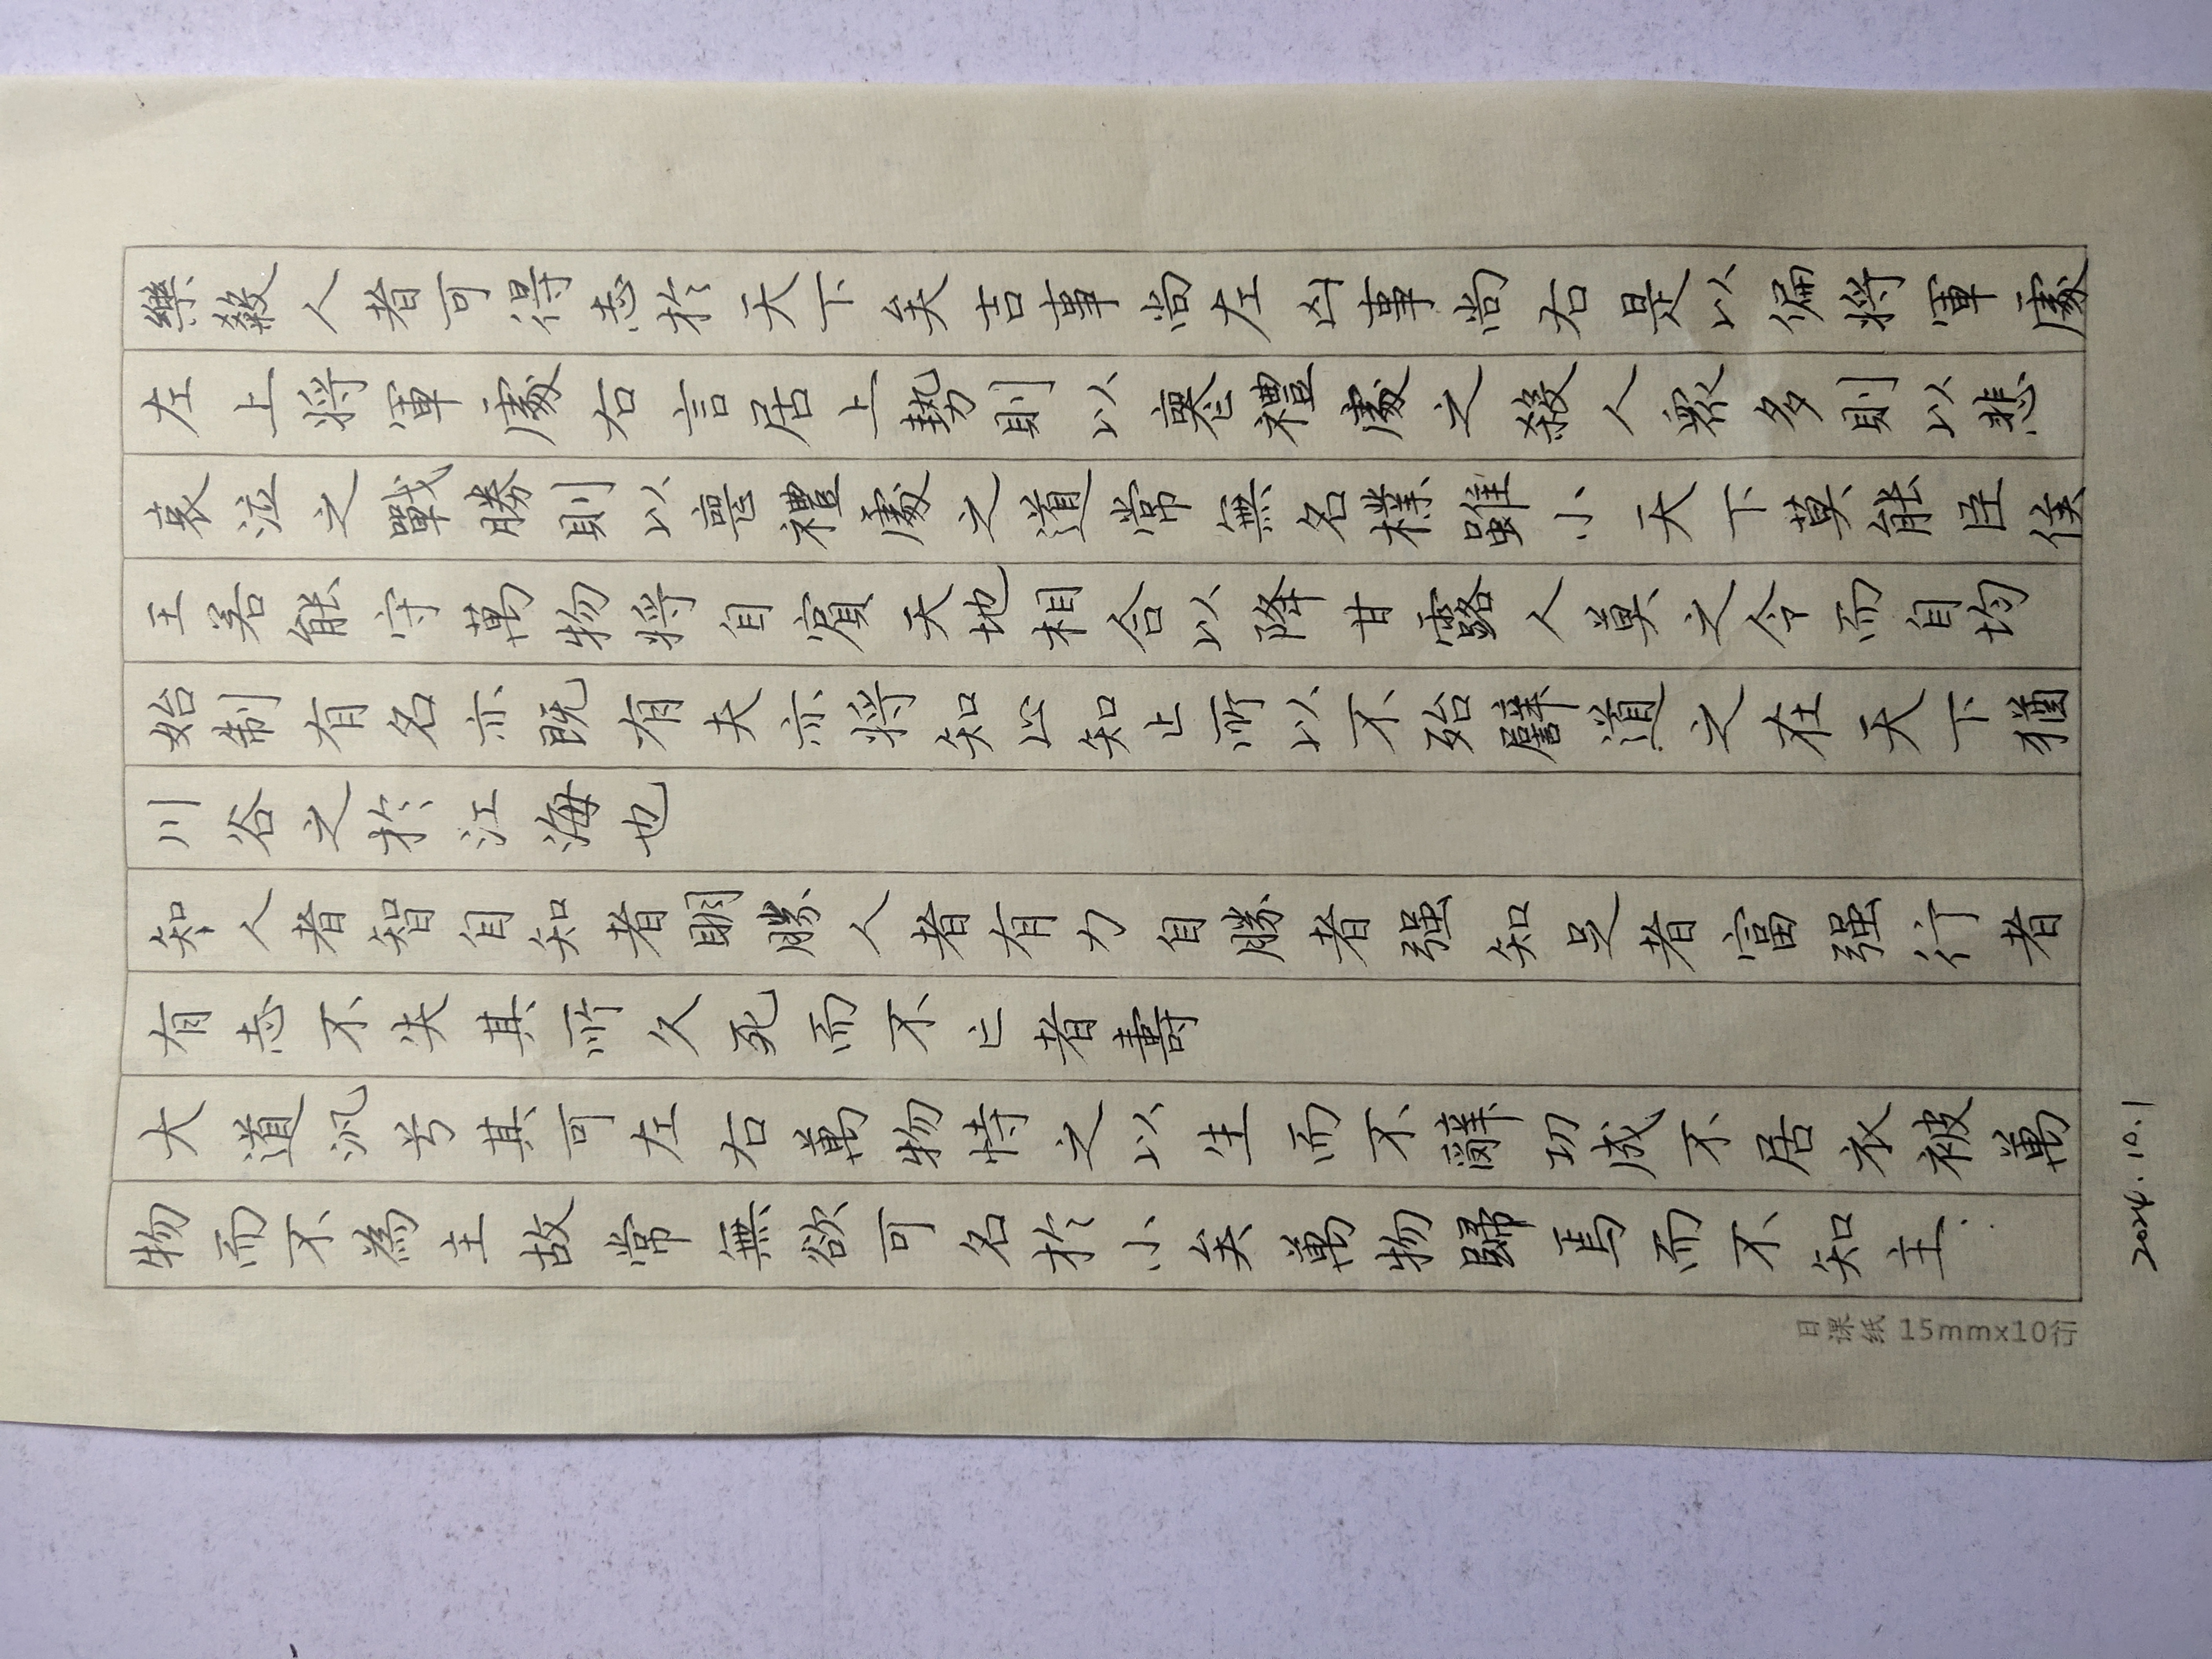 樂殺人者可得志於天下矣吉事尚左凶事尚右是以偏將軍處
左上將軍處右言居上勢則以喪禮處之殺人眾多則以悲
哀泣之戰勝則以喪禮處之道常無名樸雖小天下莫能臣侯
王若能守萬物將自賓天地相合以降甘露人莫之令而自均
始制有名亦既有夫亦將知止知止所以不殆譬道之在天下猶
川谷之於江海也
知人者智自知者明勝人者有力自勝者强知足者富强行者
有志不失其所久死而不亡者壽
大道汎兮其可左右萬物恃之以生而不辭功成不居衣被萬
物而不為主故常無欲可名於小矣萬物歸焉而不知主
日课纸 15mmx10行
2024.10.1